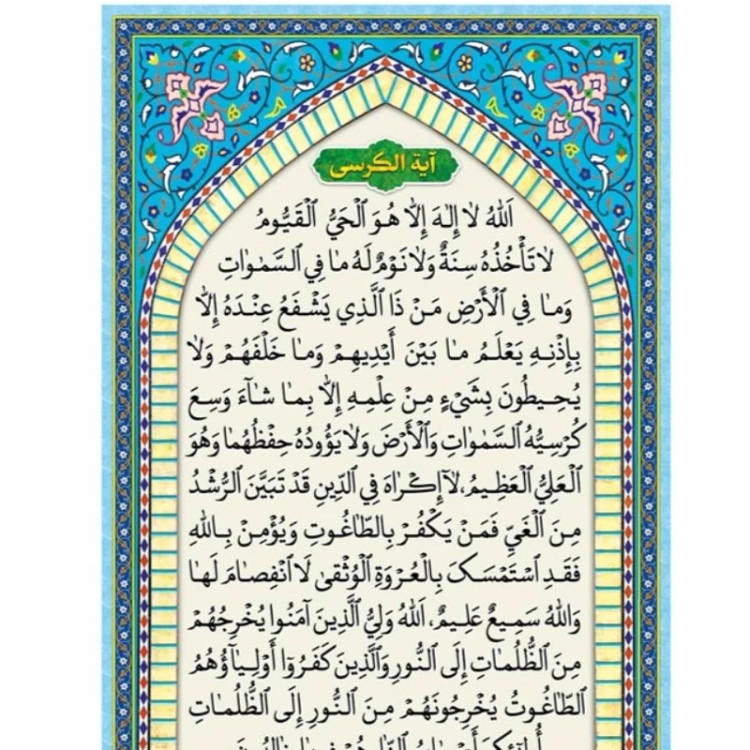 آية الكرسى
اَللهُ لا إِلٰهَ إِلاّ هُوَ الْحَيُّ الْقَيُّومُ
لا تَأْخُذُهُ سِنَةٌ وَلا نَوْمٌ لَهُ ما فِي السَّمٰواتِ
وَما فِي الْأَرْضِ مَنْ ذَا الَّذِي يَشْفَعُ عِنْدَهُ إِلاّ
بِإِذْنِهِ يَعْلَمُ ما بَيْنَ أَيْدِيهِمْ وَما خَلْفَهُمْ وَلا
يُحِيطُونَ بِشَيْءٍ مِنْ عِلْمِهِ إِلاّ بِما شاءَ وَسِعَ
كُرْسِيُّهُ السَّمٰواتِ وَالْأَرْضَ وَلا يَؤُودُهُ حِفْظُهُما وَهُوَ
الْعَلِيُّ الْعَظِيمُ، لاۤ إِكْراهَ فِي الدِّينِ قَدْ تَبَيَّنَ الرُّشْدُ
مِنَ الْغَيِّ فَمَنْ يَكْفُرْ بِالطّاغُوتِ وَيُؤْمِنْ بِاللهِ
فَقَدِ اسْتَمْسَكَ بِالْعُرْوَةِ الْوُثْقىٰ لاَ انْفِصامَ لَها
وَاللهُ سَمِيعٌ عَلِيمٌ، اَللهُ وَلِيُّ الَّذِينَ آمَنُوا يُخْرِجُهُمْ
مِنَ الظُّلُماتِ إِلَى النُّورِ وَالَّذِينَ كَفَرُوا أَوْلِياؤُهُمُ
الطّاغُوتُ يُخْرِجُونَهُمْ مِنَ النُّورِ إِلَى الظُّلُماتِ